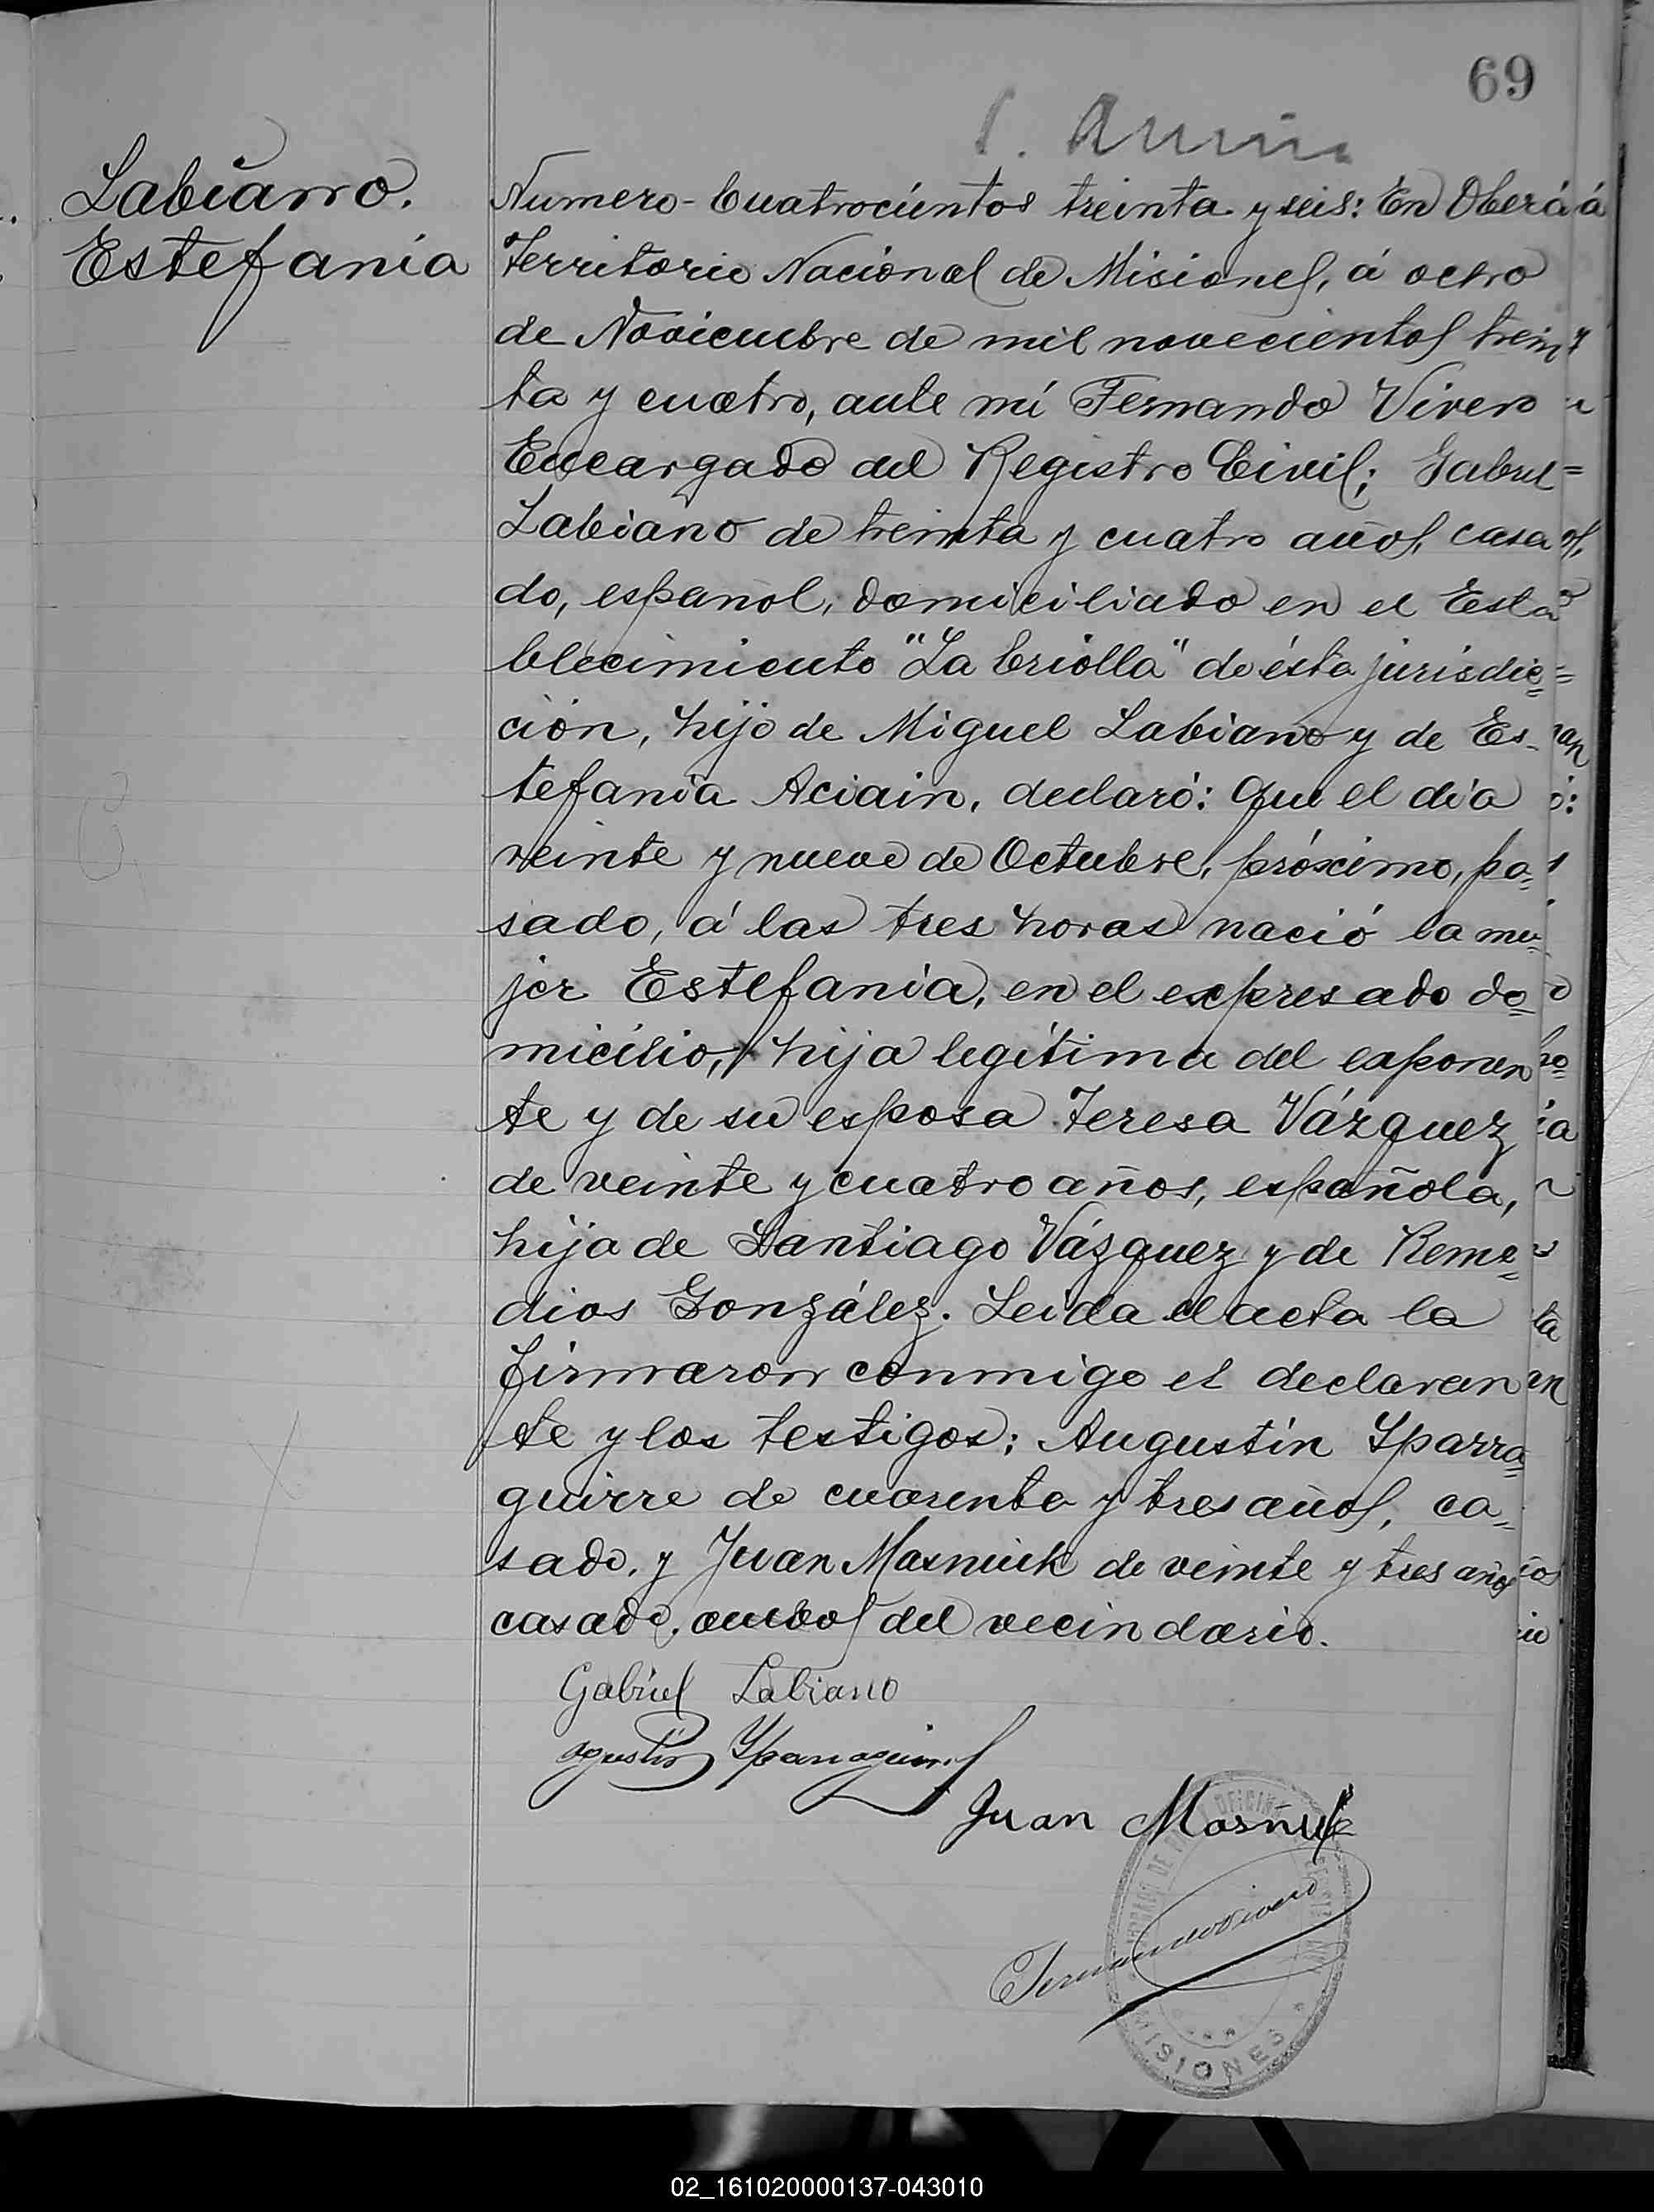 69
Labiano.
Estefania
Numero-Cuatrocientos treinta y seis: En Oberá
Territorio Nacional de Misiones, á ocho
de Noviembre de mil novecientos trein
ta y cuatro, ante mí Fernando Vivero
Encargado del Registro Civil; Gabriel
Labiano de treinta y cuatro años, casa
do, español, domiciliado en el Esta
blecimiento "La Criolla" de ésta jurisdic=
ción, hijo de Miguel Labiano y de Es-
tefania Aciain, declaró: Que el día
veinte y nueve de Octubre, próximo, pa=
sado, á las tres horas nació la mu=
jer Estefania, en el expresado do=
micilio, hija legítima del exponen
te y de su esposa Teresa Vázquez
de veinte y cuatro años, española,
hija de Santiago Vázquez y de Reme=
dios González. Leida el acta la
firmaron conmigo el declaran
te y los testigos; Augustín Yparra=
guirre de cuarenta y tres años, ca=
sado, y Juan Masniuk de veinte y tres años
casado, ambos del vecindario.
Gabriel Labiano
Agustin Yparraguirre
Juan
Fernando Vivero
MISIONES
02_161020000137-043010